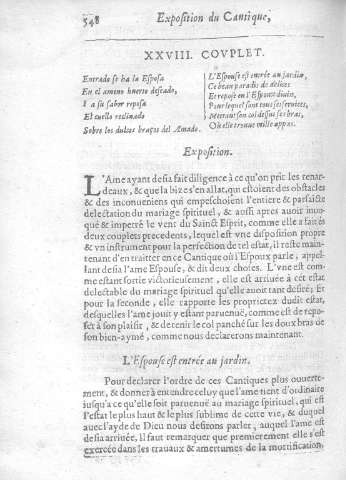 548 Exposition du Cantique,
XXVIII. COVPLET.
Entrado se ha la Esposa
En el ameno huerto deseado,
I a su sabor reposa
El cuello reclinado
Sobre los dulces braços del Amado.
L'Espouse est entrée au jardin,
Ce beau paradis de delices
Et repose en l'Espoux diuin,
Pour lequel sont tous ses seruices,
Mettant son col dessus ses bras,
Où elle trouue mille appas.
Exposition.
L'Ame ayant desia fait diligence à ce qu'on prit les renar-
deaux, & que la bize s'en allat, qui estoient des obstacles
& des inconueniens qui empeschoient l'entiere & parfaicte
delectation du mariage spirituel, & aussi apres auoir inuo-
qué & impetré le vent du Sainct Esprit, comme elle a fait és
deux couplets precedens, lequel est vne disposition propre
& vn instrument pour la perfection de tel estat, il reste main-
tenant d'en traitter en ce Cantique où l'Espoux parle, appel-
lant desia l'ame Espouse, & dit deux choses. L'vne est com-
me estant sortie victorieusement, elle est arriuée à cet estat
delectable du mariage spirituel qu'elle auoit tant desiré; Et
pour la seconde, elle rapporte les proprietez dudit estat,
desquelles l'ame jouit y estant paruenuë, comme est de repo-
ser à son plaisir, & de tenir le col panché sur les doux bras de
son bien-aymé, comme nous declarerons maintenant.
L'Espouse est entrée au jardin.
Pour declarer l'ordre de ces Cantiques plus ouuerte-
ment, & donner à entendre celuy que l'ame tient d'ordinaire
jusqu'à ce qu'elle soit paruenuë au mariage spirituel, qui est
l'estat le plus haut & le plus sublime de cette vie, & duquel
auec l'ayde de Dieu nous desirons parler, auquel l'ame est
desia arriuée, il faut remarquer que premierement elle s'est
exercée dans les trauaux & amertumes de la mortification,